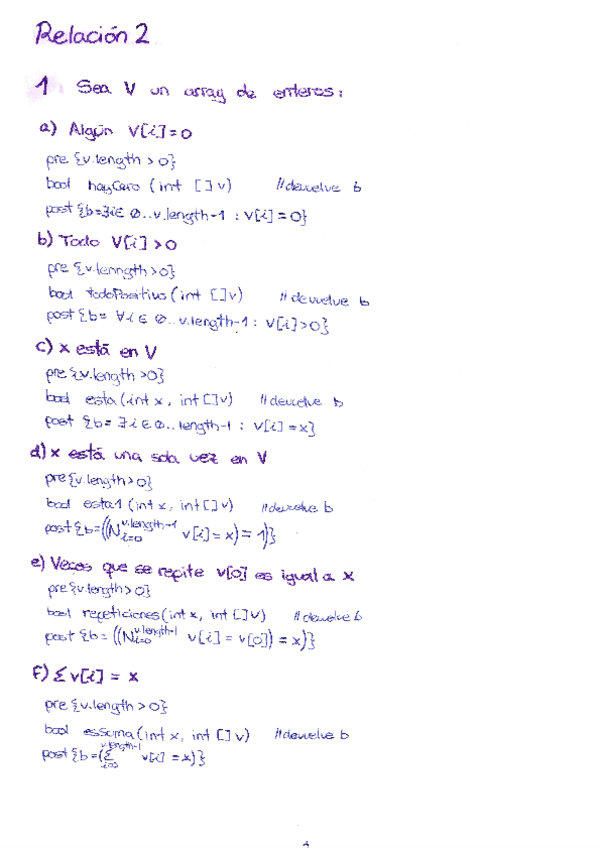 Relación 2
1 Sea V un array de enteros:
a) Algún V[i]=0
pre {v.length > 0}
bool hayCero (int []v) //devuelve b
post {b=∃i∈ 0..v.length-1 : v[i]=0}
b) Todo V[i]>0
pre {v.lenngth >0}
bool todoPositivo (int []v) //devuelve b
post {b= ∀i ∈ 0..v.length-1 : v[i]>0}
c) x está en V
pre {v.length >0}
bool esta (int x, int []v) //devuelve b
post {b= ∃i∈0..length-1 : v[i]=x}
d) x está una sola vez en V
pre {v.length>0}
bool esta1 (int x, int []v) //devuelve b
post {b=((N i=0 v.length-1 v[i]=x)=1)}
e) Veces que se repite v[0] es igual a x
pre {v.length>0}
bool repeticiones (int x, int []v) //devuelve b
post {b= ((N i=0 v.length-1 v[i]=v[0])=x)}
f) Σ v[i] = x
pre {v.length >0}
bool essuma (int x, int []v) //devuelve b
post {b=(Σ i=0 v.length-1 v[i]=x)}